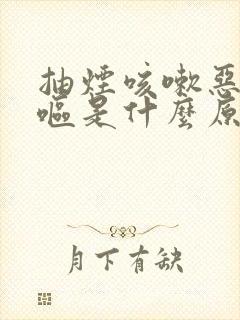 抽煙咳嗽惡
嘔是什麼原
月下有缺